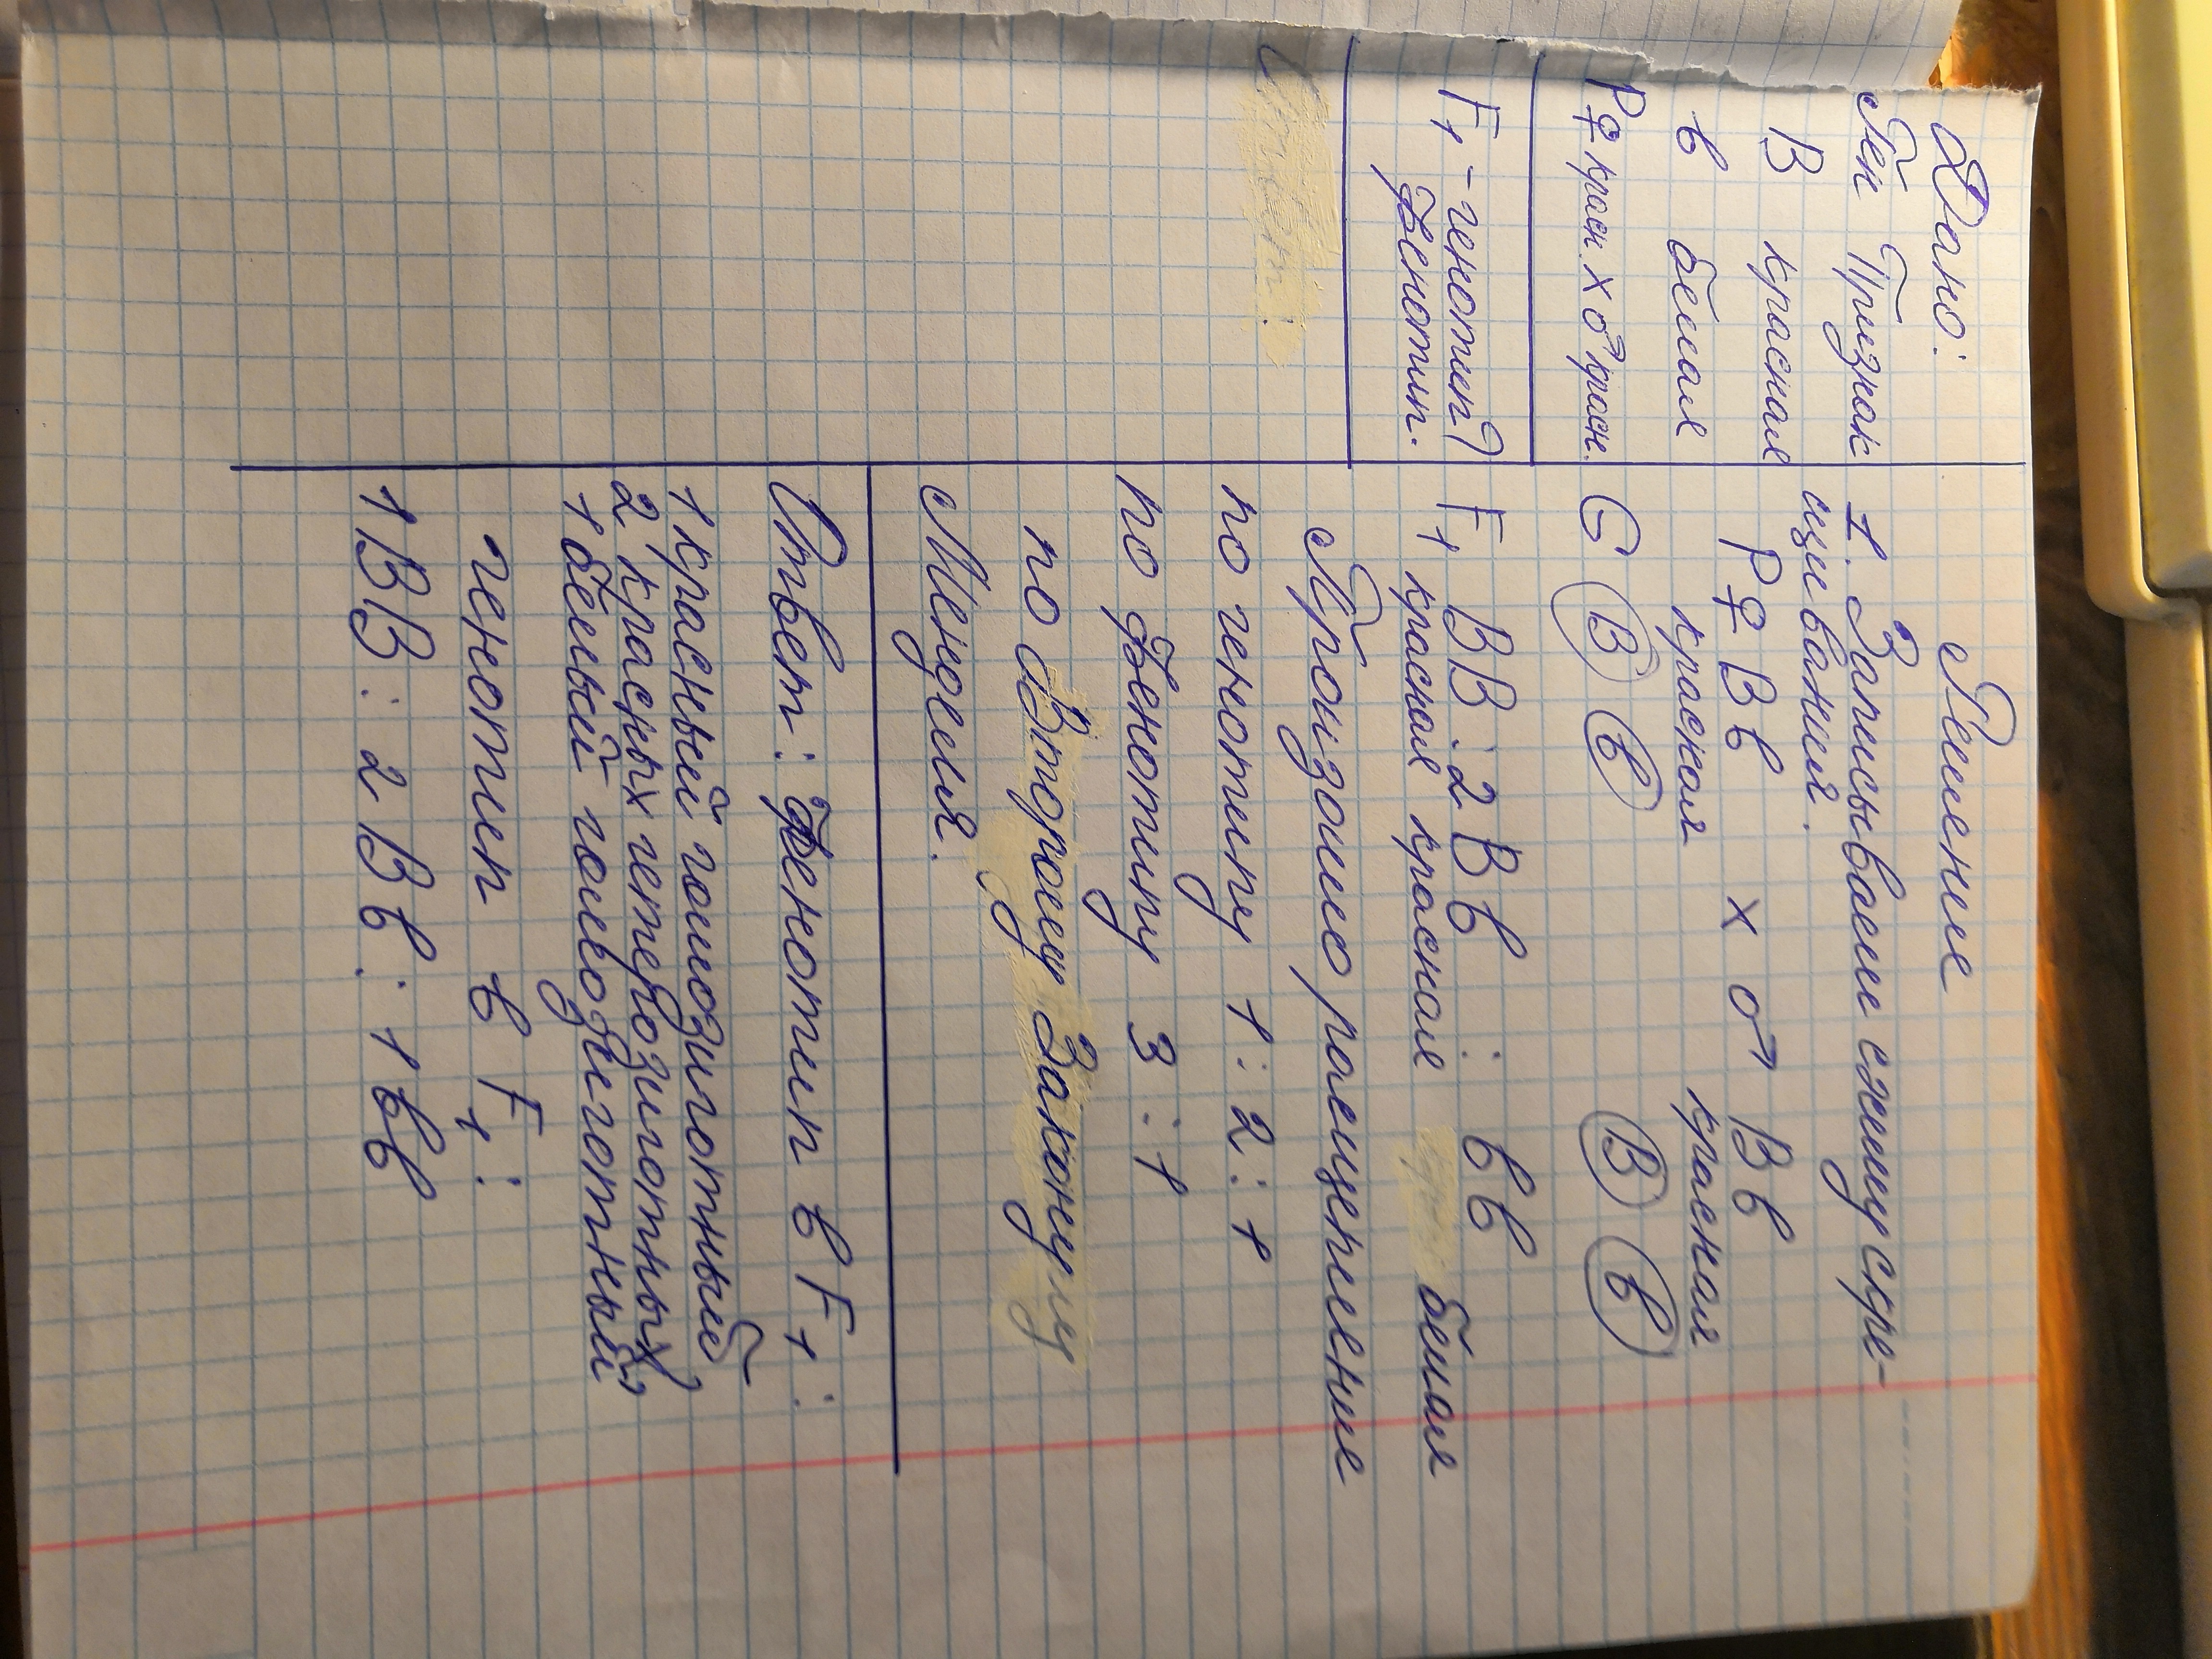 Дано:
Ген Признак
В красная
в белая
Р♀ красн. х ♂ красн.
F₁ - генотип?
фенотип.
Решение
1. Записываем схему скре-
щивания.
Р♀ Вв х ♂ Вв
красная красная
G В в В в
F₁ ВВ : 2Вв : вв
красная красная белая
Произошло расщепление
по генотипу 1:2:1
по фенотипу 3:1
по Второму Закону
Менделя.
Ответ: фенотип в F₁:
1 красный гомозиготный
2 красных гетерозиготных
1 белый гомозиготный
генотип в F₁:
1ВВ : 2Вв : 1вв